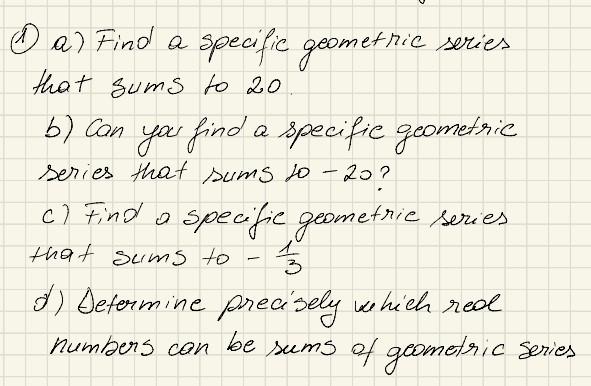 ① a) Find a specific geometric series
that sums to 20.
b) Can you find a specific geometric
series that sums to -20?
c) Find a specific geometric series
that sums to - 1/3
d) Determine precisely which real
numbers can be sums of geometric series